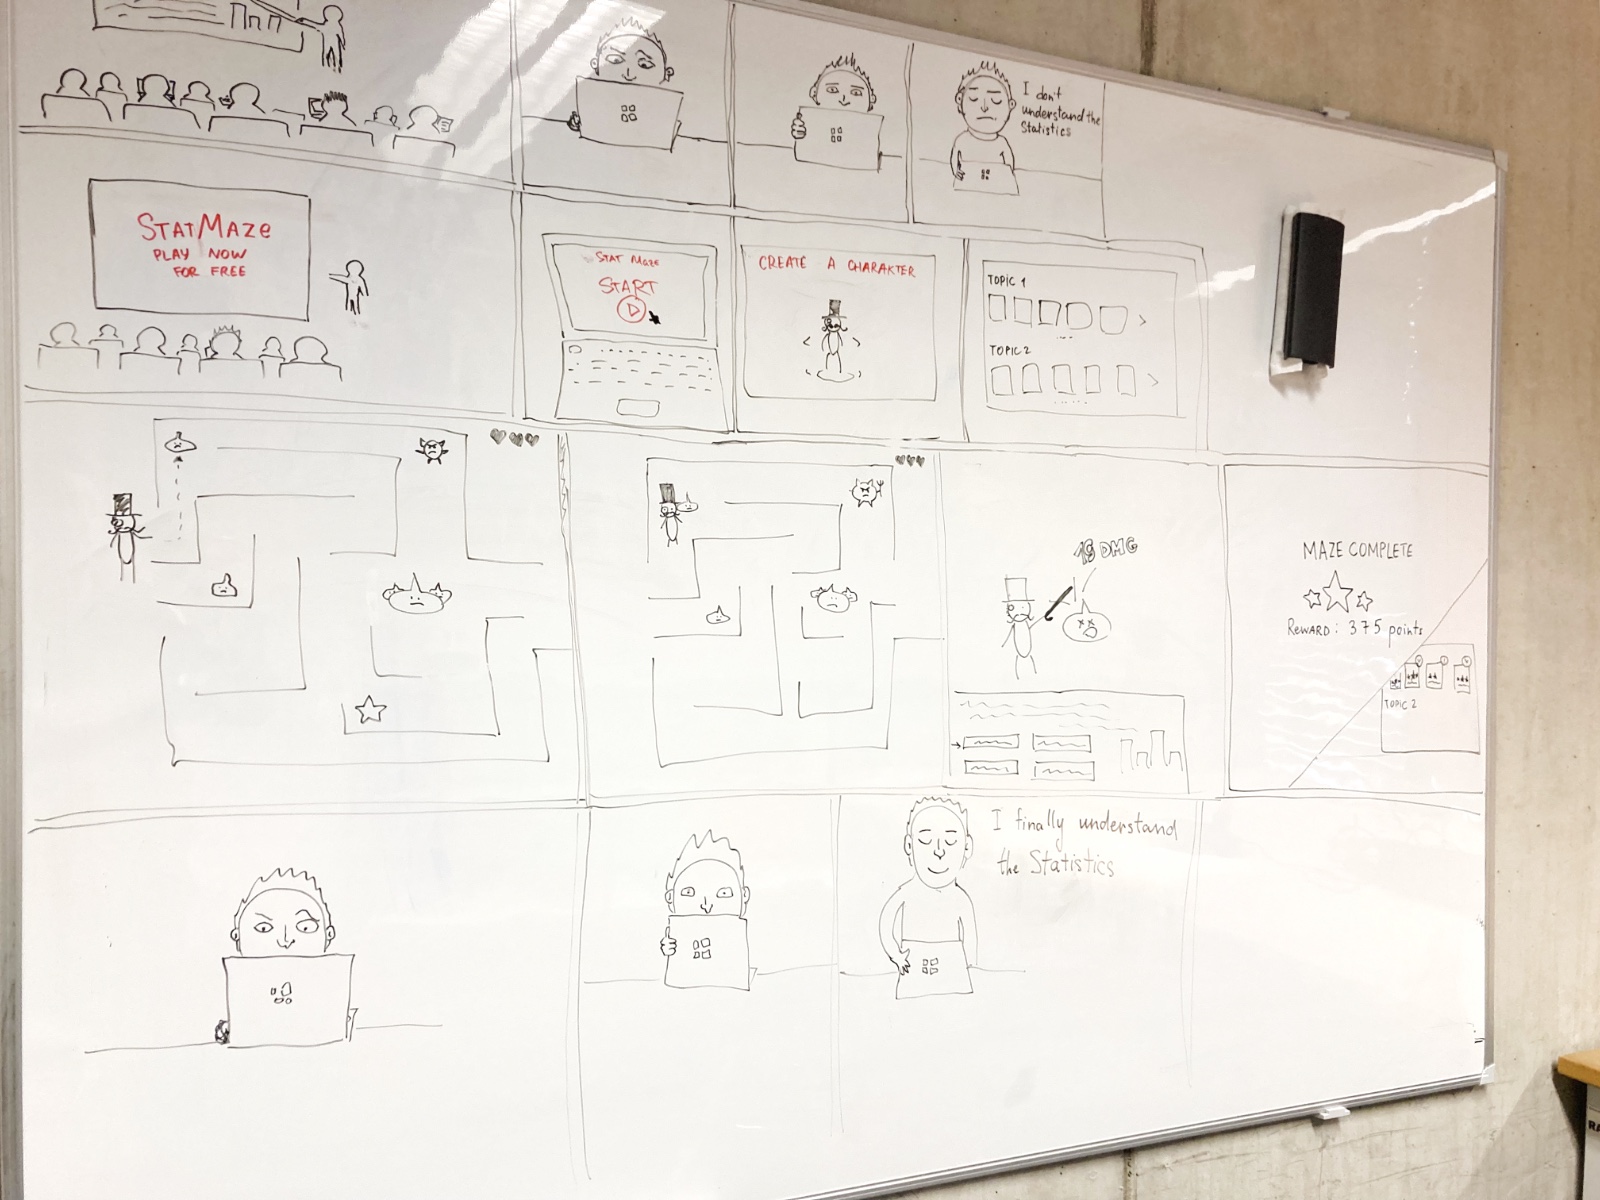 I don't
understand the
Statistics
STATMAZE
PLAY NOW
FOR FREE
STAT MAZE
START
CREATE A CHARAKTER
TOPIC 1
TOPIC 2
DMG
MAZE COMPLETE
REWARD: 375 points
TOPIC 2
I finally understand
the Statistics